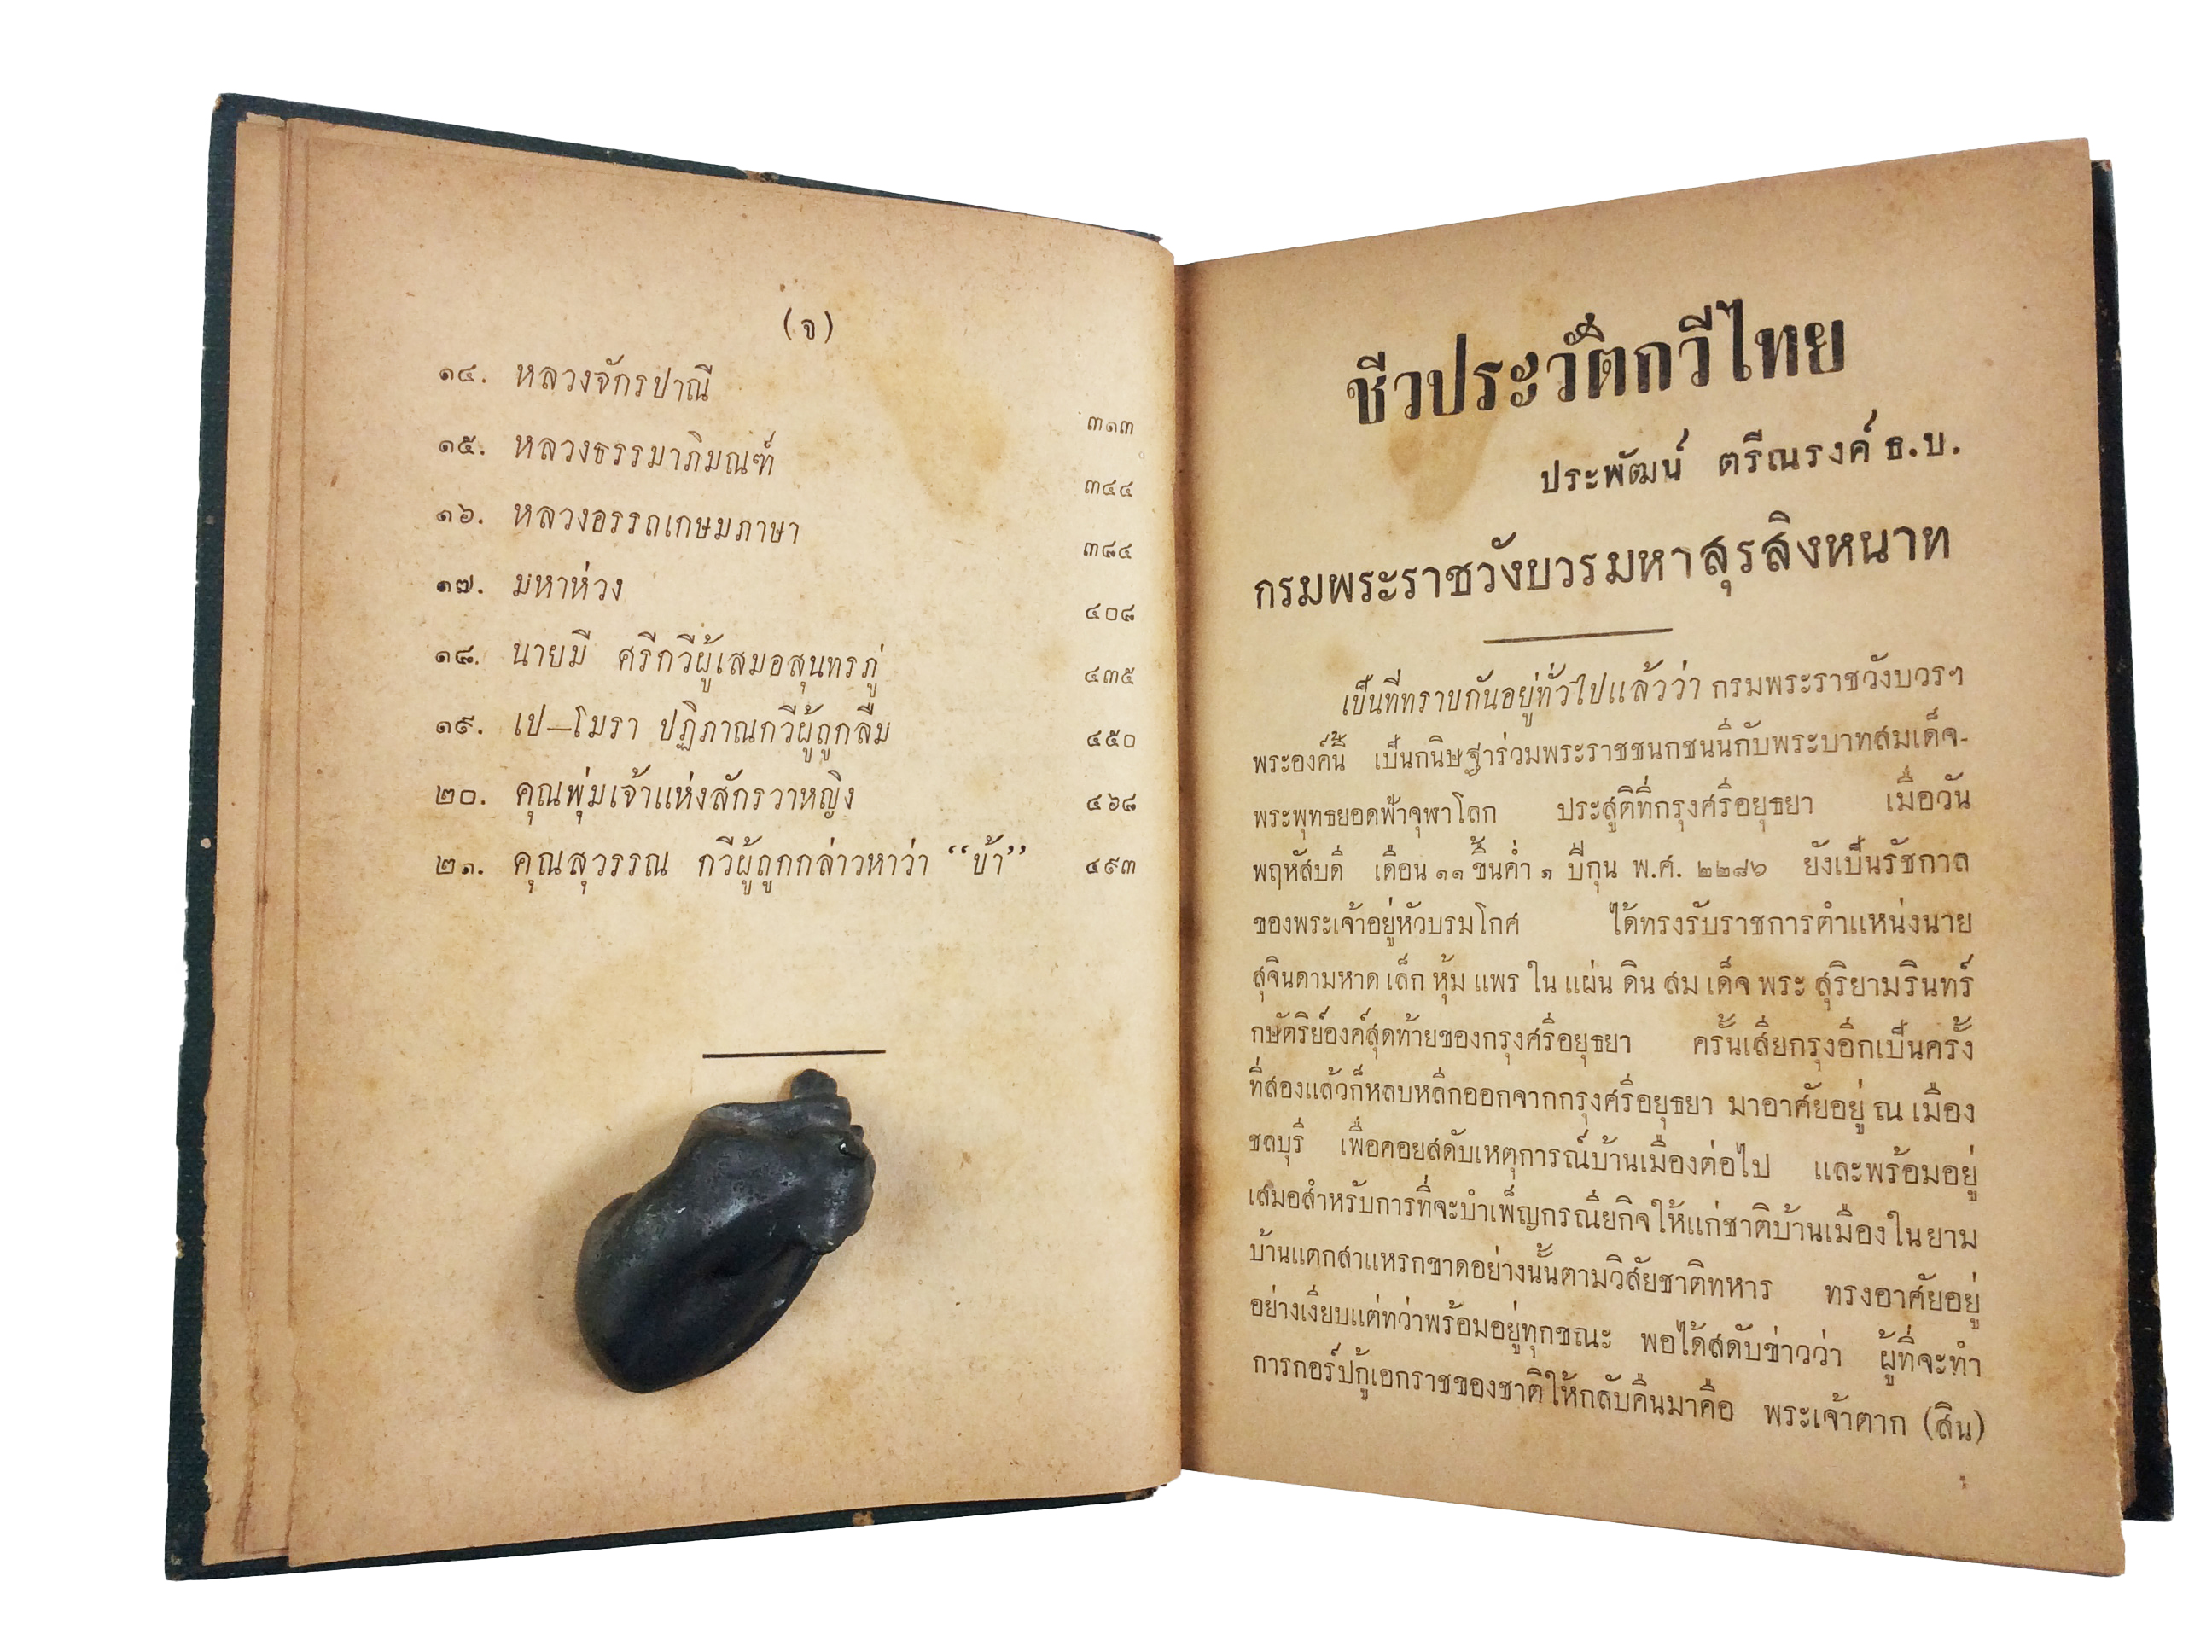 (จ)
๑๔. หลวงจักรปาณี ๓๑๓
๑๕. หลวงธรรมาภิมณฑ์ ๓๔๔
๑๖. หลวงอรรถเกษมภาษา ๓๘๔
๑๗. มหาห่วง ๔๐๘
๑๘. นายมี ศรีกวีผู้เสมอสุนทรภู่ ๔๓๕
๑๙. เป—โมรา ปฏิภาณกวีผู้ถูกลืม ๔๕๐
๒๐. คุณพุ่มเจ้าแห่งสักรวาหญิง ๔๖๘
๒๑. คุณสุวรรณ กวีผู้ถูกกล่าวหาว่า “บ้า” ๔๙๓
ชีวประวัติกวีไทย
ประพัฒน์ ตรีณรงค์ ธ.บ.
กรมพระราชวังบวรมหาสุรสิงหนาท
เป็นที่ทราบกันอยู่ทั่วไปแล้วว่า กรมพระราชวังบวรฯ
พระองค์นี้ เป็นกนิษฐาร่วมพระราชชนกชนนีกับพระบาทสมเด็จ-
พระพุทธยอดฟ้าจุฬาโลก ประสูติที่กรุงศรีอยุธยา เมื่อวัน
พฤหัสบดี เดือน ๑๑ ขึ้นค่ำ ๑ ปีกุน พ.ศ. ๒๒๘๖ ยังเป็นรัชกาล
ของพระเจ้าอยู่หัวบรมโกศ ได้ทรงรับราชการตำแหน่งนาย
สุจินดามหาดเล็กหุ้มแพรในแผ่นดินสมเด็จพระสุริยามรินทร์
กษัตริย์องค์สุดท้ายของกรุงศรีอยุธยา ครั้นเสียกรุงอีกเป็นครั้ง
ที่สองแล้วก็หลบหลีกออกจากกรุงศรีอยุธยา มาอาศัยอยู่ ณ เมือง
ชลบุรี เพื่อคอยสดับเหตุการณ์บ้านเมืองต่อไป และพร้อมอยู่
เสมอสำหรับการที่จะบำเพ็ญกรณียกิจให้แก่ชาติบ้านเมืองในยาม
บ้านแตกสาแหรกขาดอย่างนั้นตามวิสัยชาติทหาร ทรงอาศัยอยู่
อย่างเงียบแต่ทว่าพร้อมอยู่ทุกขณะ พอได้สดับข่าวว่า ผู้ที่จะทำ
การกอร์ปกู้เอกราชของชาติให้กลับคืนมาคือ พระเจ้าตาก (สิน)